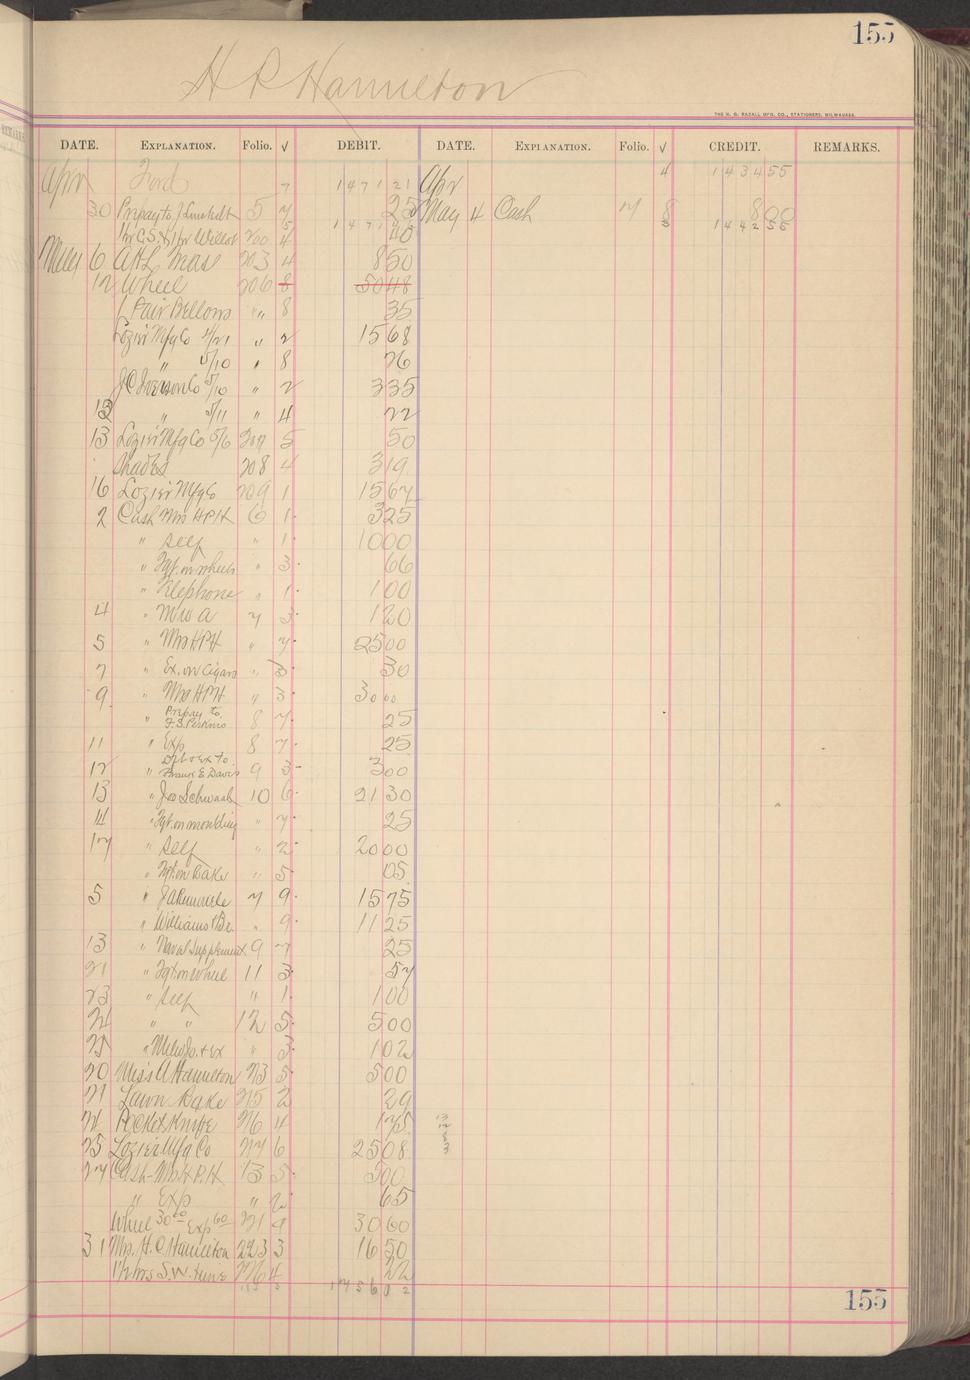 155
H P Hamilton
THE H. G. RAZALL MFG. CO., STATIONERS, MILWAUKEE.
DATE. EXPLANATION. Folio. √ DEBIT. DATE. EXPLANATION. Folio. √ CREDIT. REMARKS.
Apr Ford 7 1471 21 Apr 4 1434 55
30 Prepay to J 5 7 25 May 4 Cash 7 8 8 00
1442 55
1 hr C.S. & 1 hr Willet 200 4 40
May 6 A.H. 203 4 8 50
12 Wheel 206 8 50 48
1 Pair Bellows " 8 35
Lozier Mfg Co 4/21 " 2 15 68
" 5/10 " 8 76
J C Iverson Co 5/10 " 2 3 35
12 " 5/11 " 4 22
13 Lozier Mfg Co 5/6 207 5 50
Shades 208 4 3 19
16 Lozier Mfg Co 209 1 15 67
2 Cash Mrs HPH 6 1 3 25
" Self " 1 10 00
" Fgt. on wheels " 3 66
" Telephone " 1 1 00
4 " M W A 7 3 1 20
5 " Mrs HPH " 7 25 00
7 " Ex. on Cigars " 3 30
9 " Mrs HPH " 3 30 00
" Prepay to F.S. Perkins 8 7 25
11 " Exp 8 7 25
12 " Ex to Frank E. Davis 9 3 3 00
13 " Jos Schwaab 10 6 21 30
14 " Fgt. on moulding " 7 25
17 " Self " 2 20 00
" Fgt. on Rake " 5 05
5 " J A 7 9 15 75
" Williams & Br. " 9 11 25
13 " Naval Supplement 9 7 25
21 " Fgt on Wheel 11 3 57
23 " Self " 1 1 00
24 " " 12 5 5 00
25 " & Ex " 3 1 02
20 Miss A Hamilton 213 5 5 00
21 Lawn Rake 215 2 29
24 Pocket Knife 216 4 1 75
25 Lozier Mfg Co 217 6 25 08
27 Cash - Mrs H.P.H 13 5 5 00
" Exp " 2 65
Wheel 30 00 Exp 60 221 9 30 60
31 Mrs. H.C. Hamilton 223 3 16 50
1 1/2 hrs S.W. 226 4 22
1756 02
155